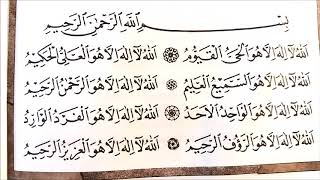 بِسْمِ اللهِ الرَّحْمٰنِ الرَّحِيْمِ
اَللهُ لَا اِلٰهَ اِلَّا هُوَ الْحَيُّ الْقَيُّوْمُ اَللهُ لَا اِلٰهَ اِلَّا هُوَ الْعَالِيُ الْحَكِيْمُ
اَللهُ لَا اِلٰهَ اِلَّا هُوَ السَّمِيْعُ الْعَلِيْمُ اَللهُ لَا اِلٰهَ اِلَّا هُوَ الرَّحْمٰنُ الرَّحِيْمُ
اَللهُ لَا اِلٰهَ اِلَّا هُوَ الْوَاحِدُ الْاَحَدُ اَللهُ لَا اِلٰهَ اِلَّا هُوَ الْفَرْدُ
اَللهُ لَا اِلٰهَ اِلَّا هُوَ الرَّؤُفُ الرَّحِيْمُ اَللهُ لَا اِلٰهَ اِلَّا هُوَ الْعَزِيْزُ الرَّحِيْمُ